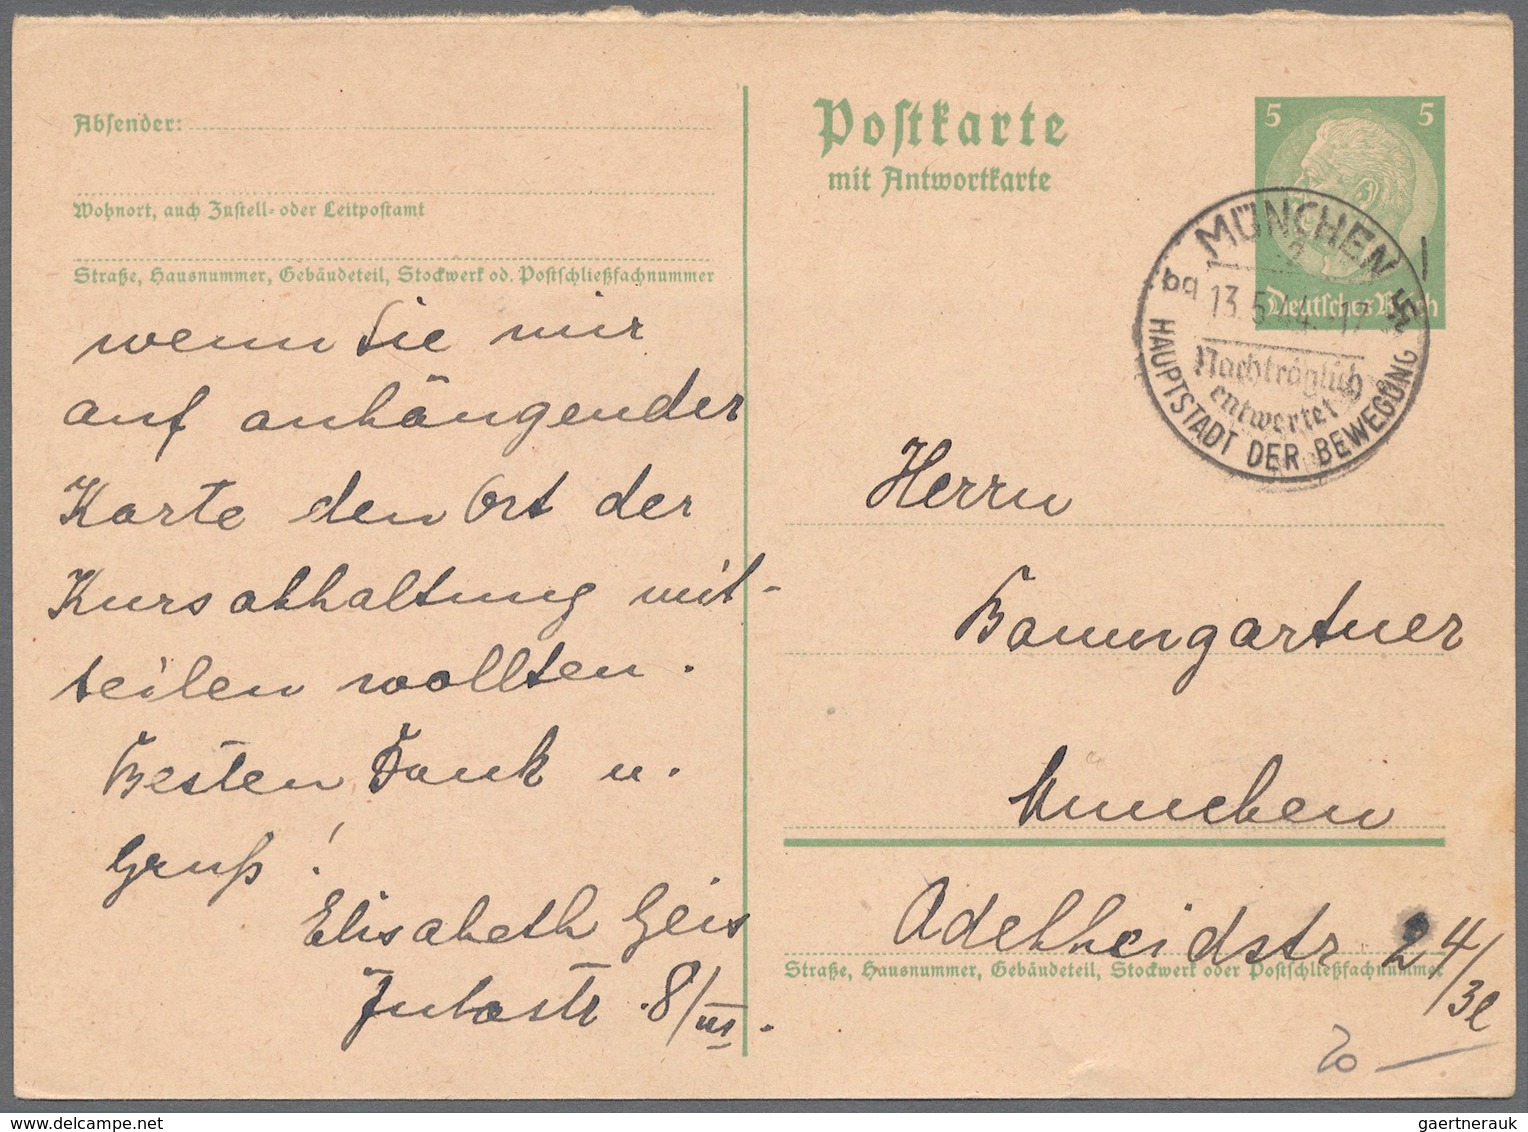 Absender:
Wohnort, auch Zustell- oder Leitpostamt
Straße, Hausnummer, Gebäudeteil, Stockwerk od. Postschließfachnummer
wenn Sie mir
auf anhängender
Karte den Ort der
Kursabhaltung mit-
teilen wollten.
Besten Dank u.
Gruß!
Elisabeth Geis
8/III.
Postkarte
mit Antwortkarte
5 5
Deutsches Reich
MÜNCHEN
2
bq
13.5.44. 17
Nachträglich
entwertet
HAUPTSTADT DER BEWEGUNG
Herrn
Baumgartner
München
Adelheidstr 24/3l
Straße, Hausnummer, Gebäudeteil, Stockwerk oder Postschließfachnummer
20 —
gaertnerauk